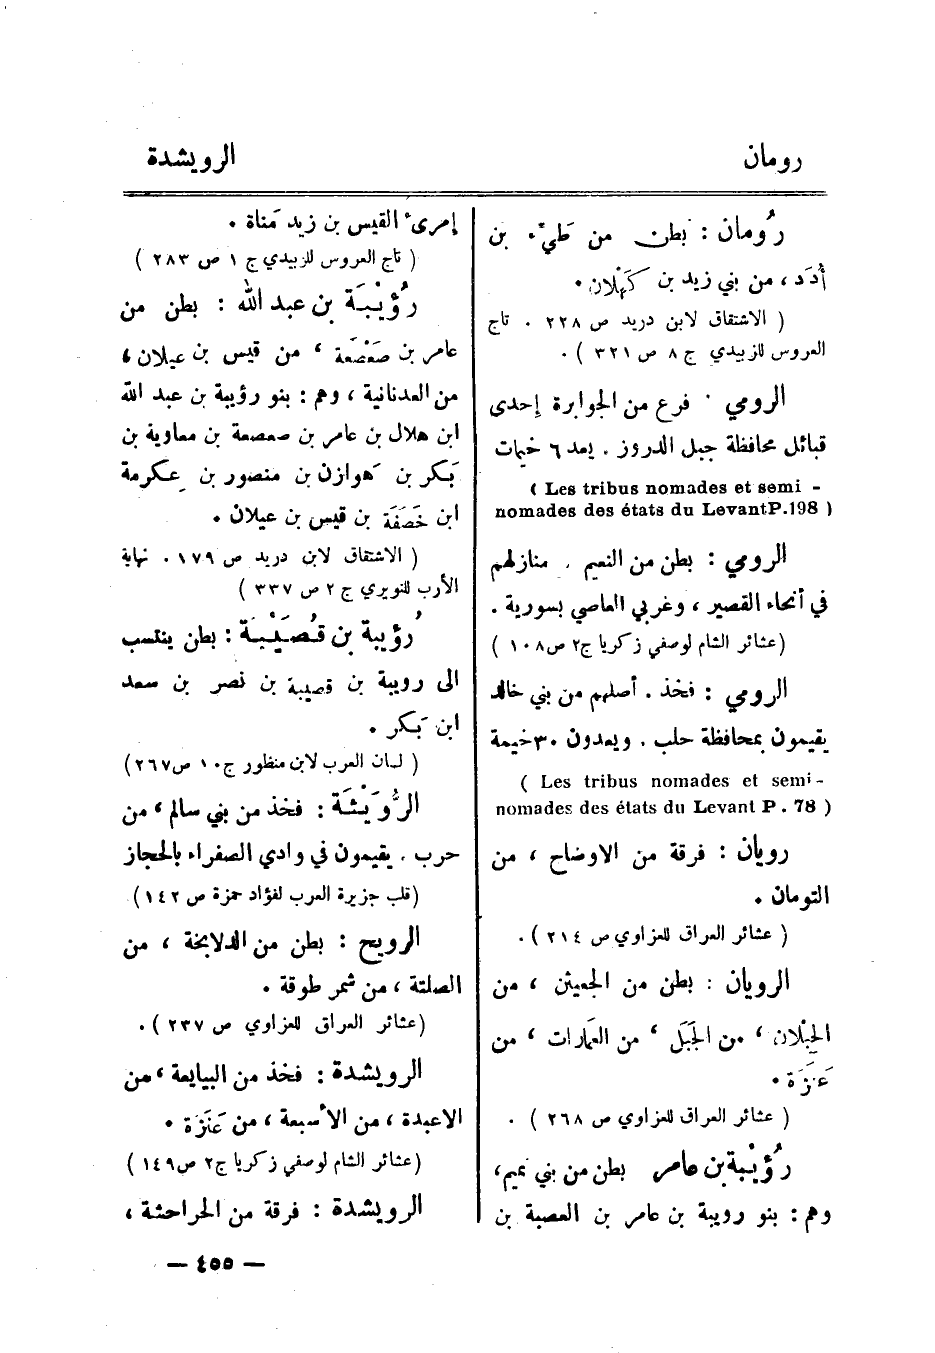 رومان
الرويشدة
رُومان : بطن من طَيّء بن
أُدَد ، من بني زيد بن كَهْلان .
( الاشتقاق لابن دريد ص ٢٢٨ . تاج
العروس للزبيدي ج ٨ ص ٣٢١ ) .
الرومي : فرع من الجوابرة إحدى
قبائل محافظة جبل الدروز . يعد ٦ خيمات
( Les tribus nomades et semi -
nomades des états du Levant P.198 )
الرومي : بطن من النعيم . منازلهم
في أنحاء القصير ، وغربي العاصي بسورية .
(عشائر الشام لوصفي زكريا ج٢ ص١٠٨ )
الرومي : فخذ . أصلهم من بني خالد
يقيمون بمحافظة حلب . ويعدون ٣٠ خيمة
( Les tribus nomades et semi-
nomades des états du Levant P . 78 )
رويان : فرقة من الاوضاح ، من
التومان .
( عشائر العراق للعزاوي ص ٢١٤ ) .
الرويان : بطن من الجعيثن ، من
الحِبْلان ، من الجَبَل ، من العمارات ، من
عَنَزَة .
( عشائر العراق للعزاوي ص ٢٦٨ ) .
رُؤَيْبة بن عامر بطن من بني تميم،
وهم : بنو رويبة بن عامر بن العصبة بن
إمرىء القيس بن زيد مَناة .
( تاج العروس للزبيدي ج ١ ص ٢٨٣ )
رُؤَيْبَة بن عبد الله : بطن من
عامر بن صَعْصَعة ، من قيس بن عيلان ،
من العدنانية ، وهم : بنو رؤيبة بن عبد الله
ابن هلال بن عامر بن صعصعة بن معاوية بن
بَكر بن هَوازن بن منصور بن عكرمة
ابن خَصَفَة بن قيس بن عيلان .
( الاشتقاق لابن دريد ص ١٧٩ . نهاية
الأرب للنويري ج ٢ ص ٣٣٧ )
رُؤيبة بن قُصَيْبة : بطن ينتسب
الى رويبة بن قصيبة بن نصر بن سعد
ابن بَكر .
( لسان العرب لابن منظور ج١٠ ص٢٦٧)
الرُّوَيْثَة : فخذ من بني سالم ، من
حرب . يقيمون في وادي الصفراء بالحجاز
(قلب جزيرة العرب لفؤاد حمزة ص ١٤٢)
الرويح : بطن من الدلابخة ، من
الصلتة ، من شمر طوقة .
(عشائر العراق للعزاوي ص ٢٣٧ ) .
الرويشدة : فخذ من البيايعة ، من
الاعبدة ، من الأسبعة ، من عَنَزة .
(عشائر الشام لوصفي زكريا ج٢ ص١٤٩ )
الرويشدة : فرقة من الحراحشة ،
— ٤٥٥ —